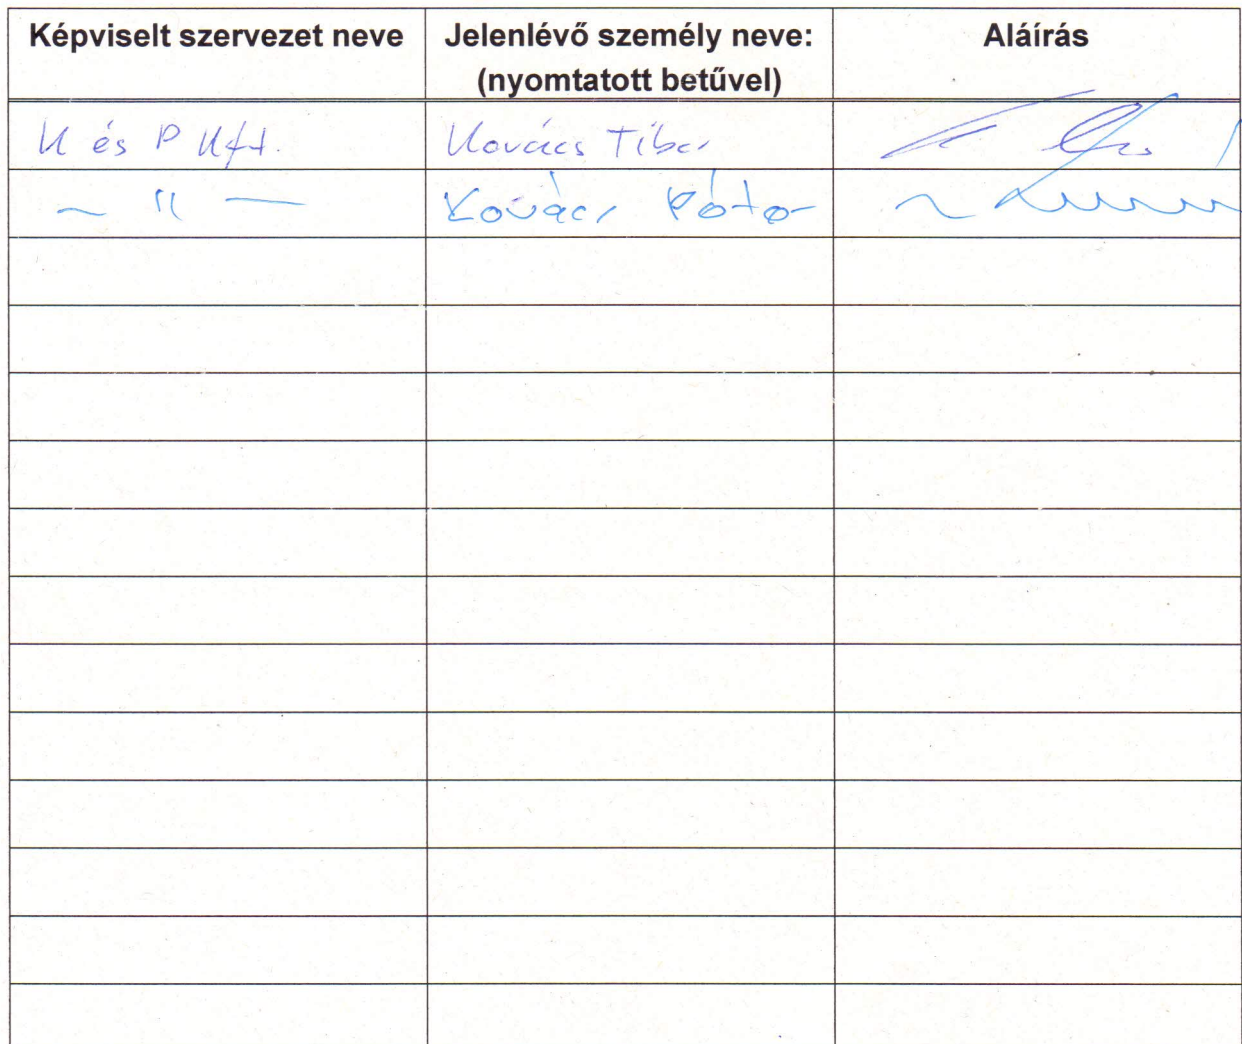 Képviselt szervezet neve
Jelenlévő személy neve:
(nyomtatott betűvel)
Aláírás
K és P Kft.
Kovács Tibor
— " —
Kovács Péter